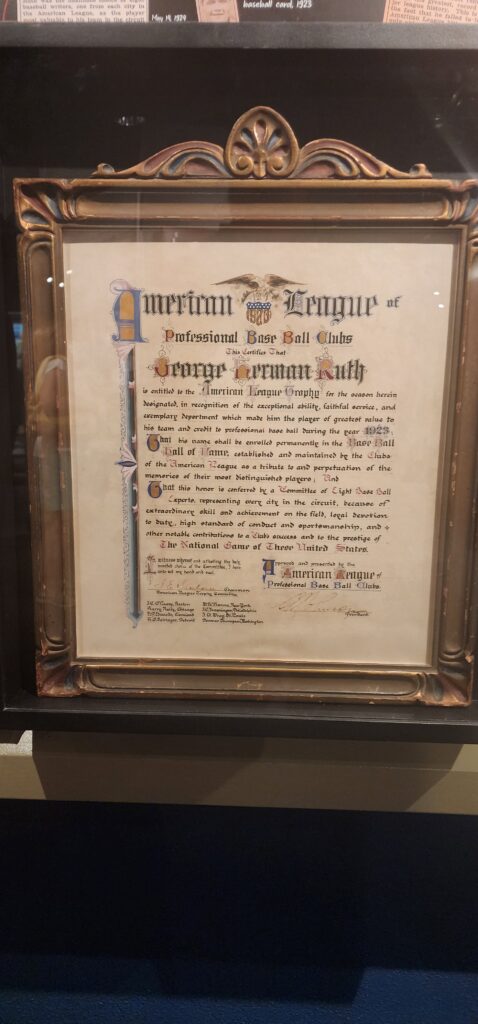 the American League, as the player
May 14, 1924
baseball card, 1923
American League of
1923
Professional Base Ball Clubs
This Certifies That
George Herman Ruth
is entitled to the American League Trophy for the season herein
designated, in recognition of the exceptional ability, faithful service, and
exemplary deportment which made him the player of greatest value to
his team and credit to professional base ball during the year 1923.
That his name shall be enrolled permanently in the Base Ball
Hall of Fame, established and maintained by the Clubs
of the American League as a tribute to and perpetuation of the
memories of their most distinguished players; And
That this honor is conferred by a Committee of Eight Base Ball
Experts, representing every city in the circuit, because of
extraordinary skill and achievement on the field, loyal devotion
to duty, high standard of conduct and sportsmanship, and
other notable contributions to a Clubs success and to the prestige of
The National Game of These United States.
In witness whereof and attesting the duly
recorded action of the Committee, I have
hereunto set my hand and seal.
Chairman
American League Trophy Committee.
Approved and presented by the
American League of
Professional Base Ball Clubs.
President